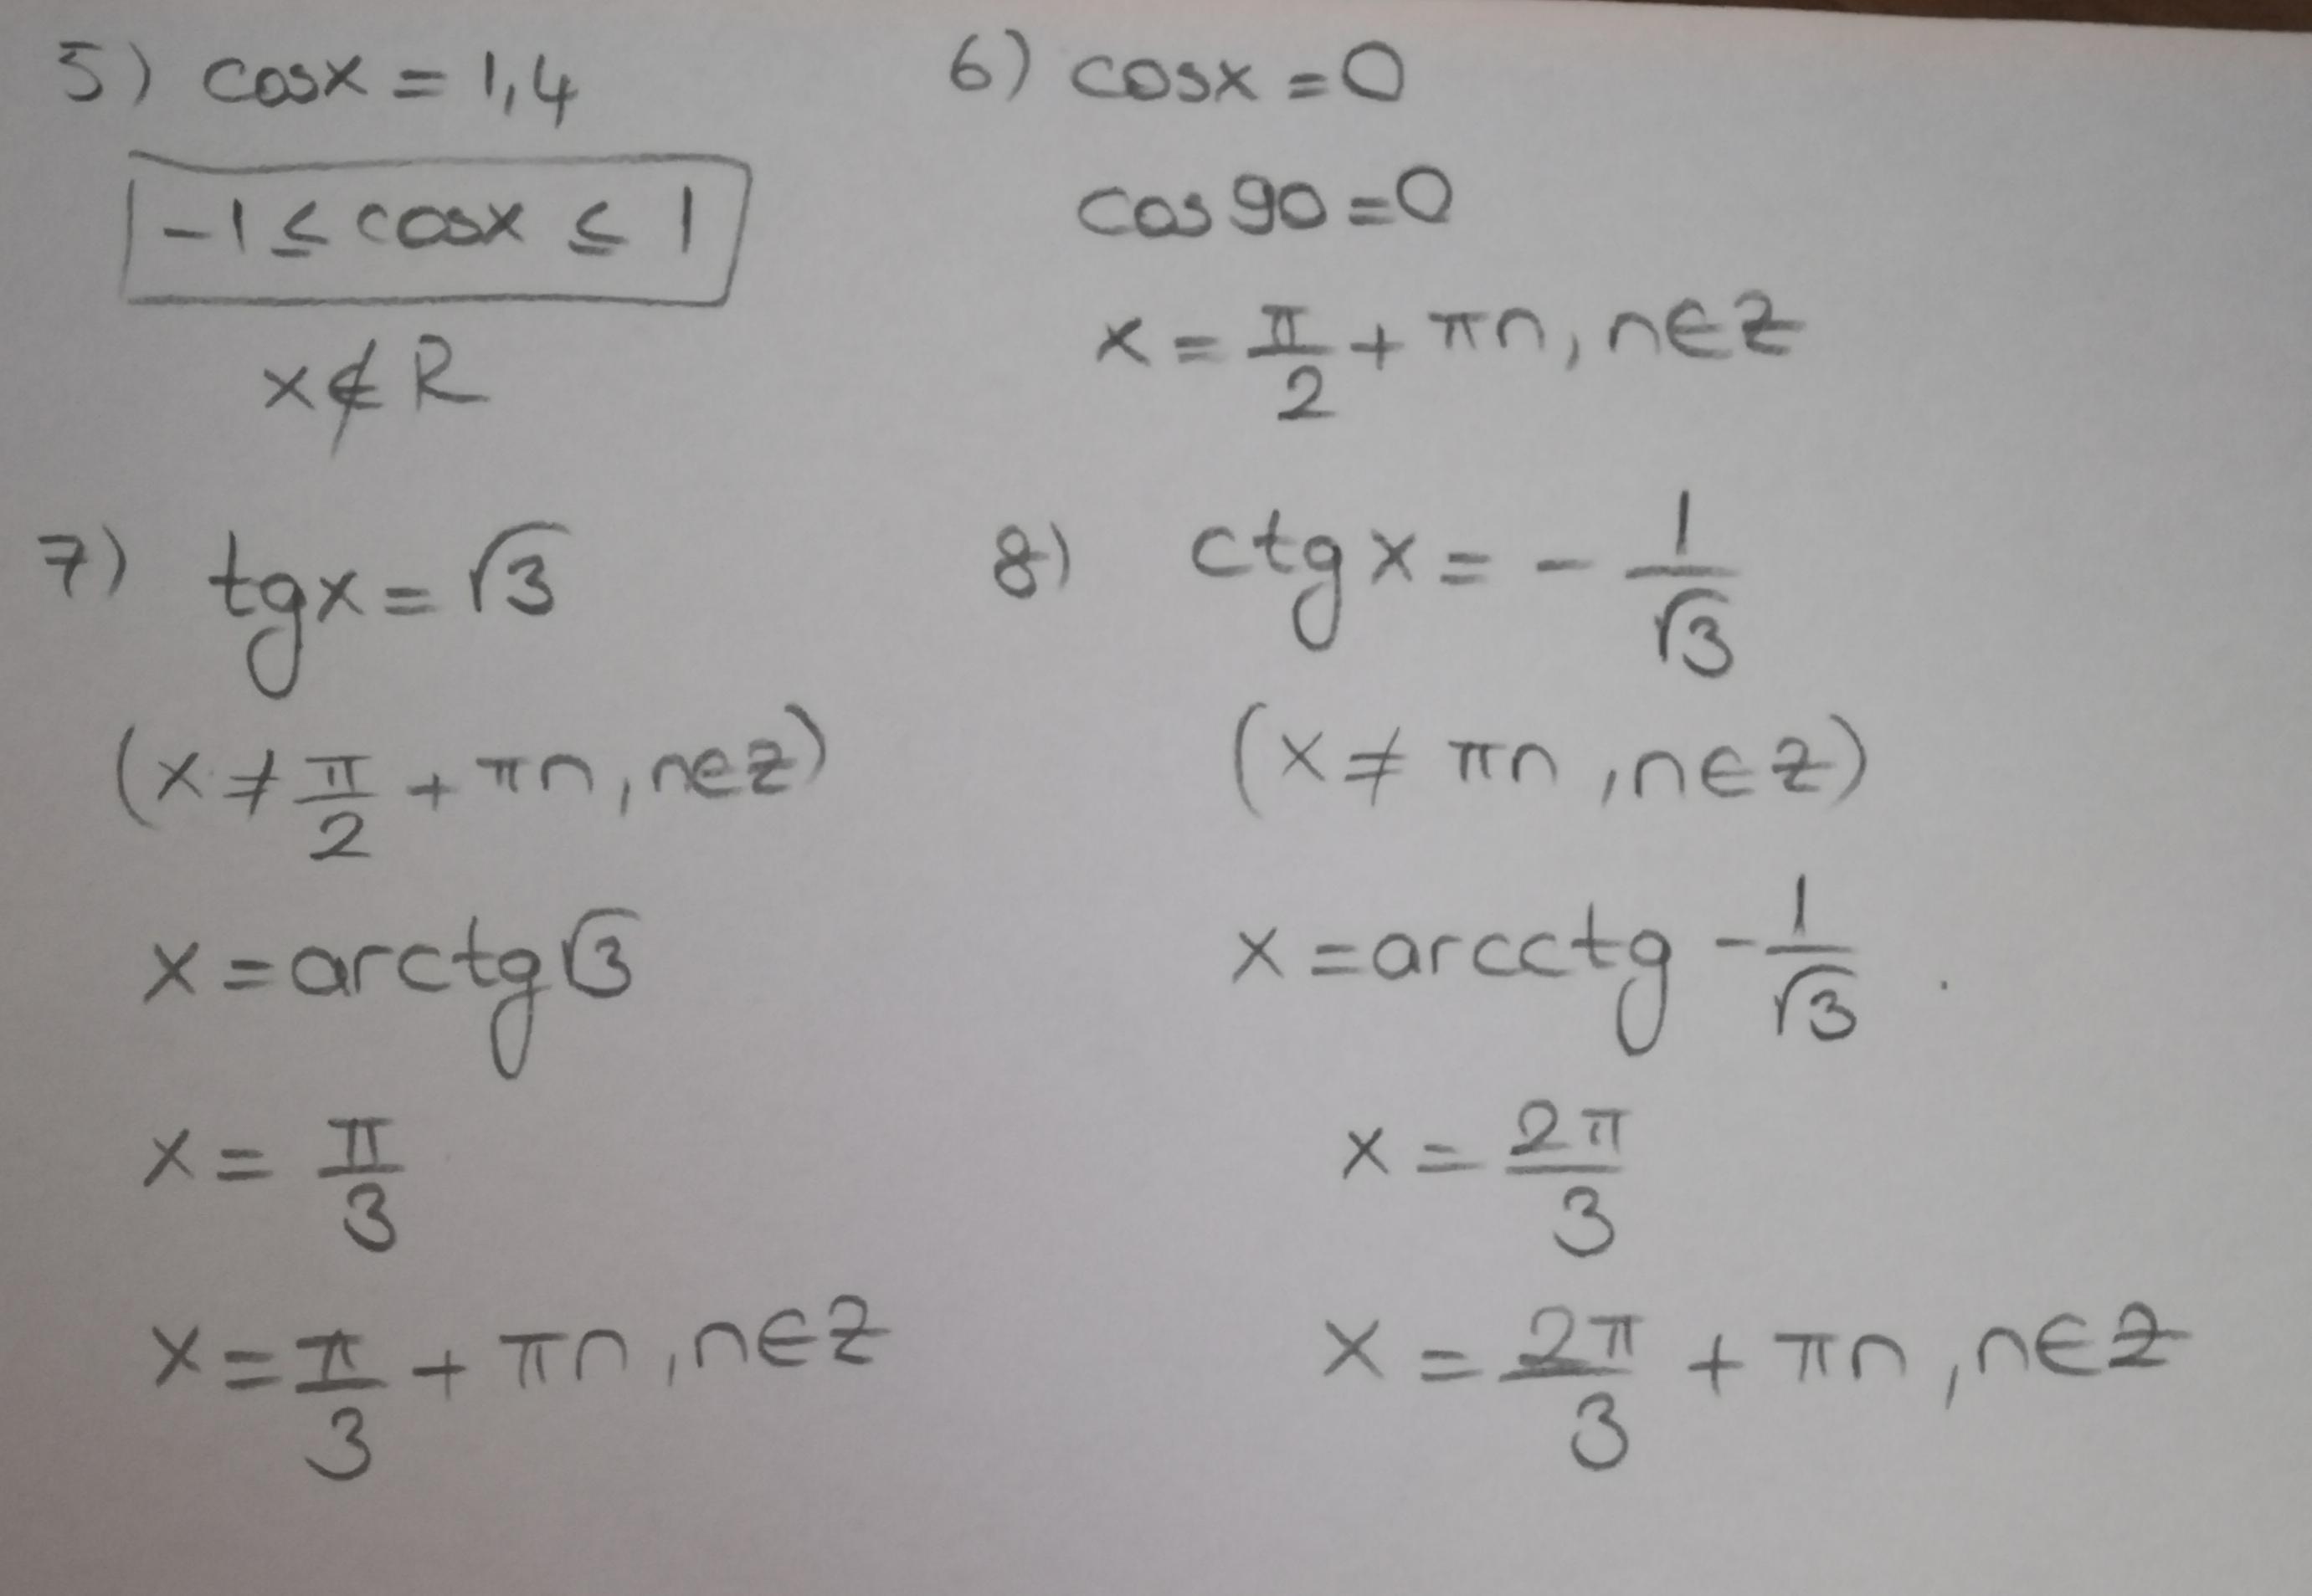 5) cosx = 1,4
-1 ≤ cosx ≤ 1
x ∉ R
6) cosx = 0
cos 90 = 0
x = π/2 + πn, n∈Z
7) tgx = √3
(x ≠ π/2 + πn, n∈Z)
x = arctg√3
x = π/3
x = π/3 + πn, n∈Z
8) ctgx = - 1/√3
(x ≠ πn, n∈Z)
x = arcctg - 1/√3
x = 2π/3
x = 2π/3 + πn, n∈Z